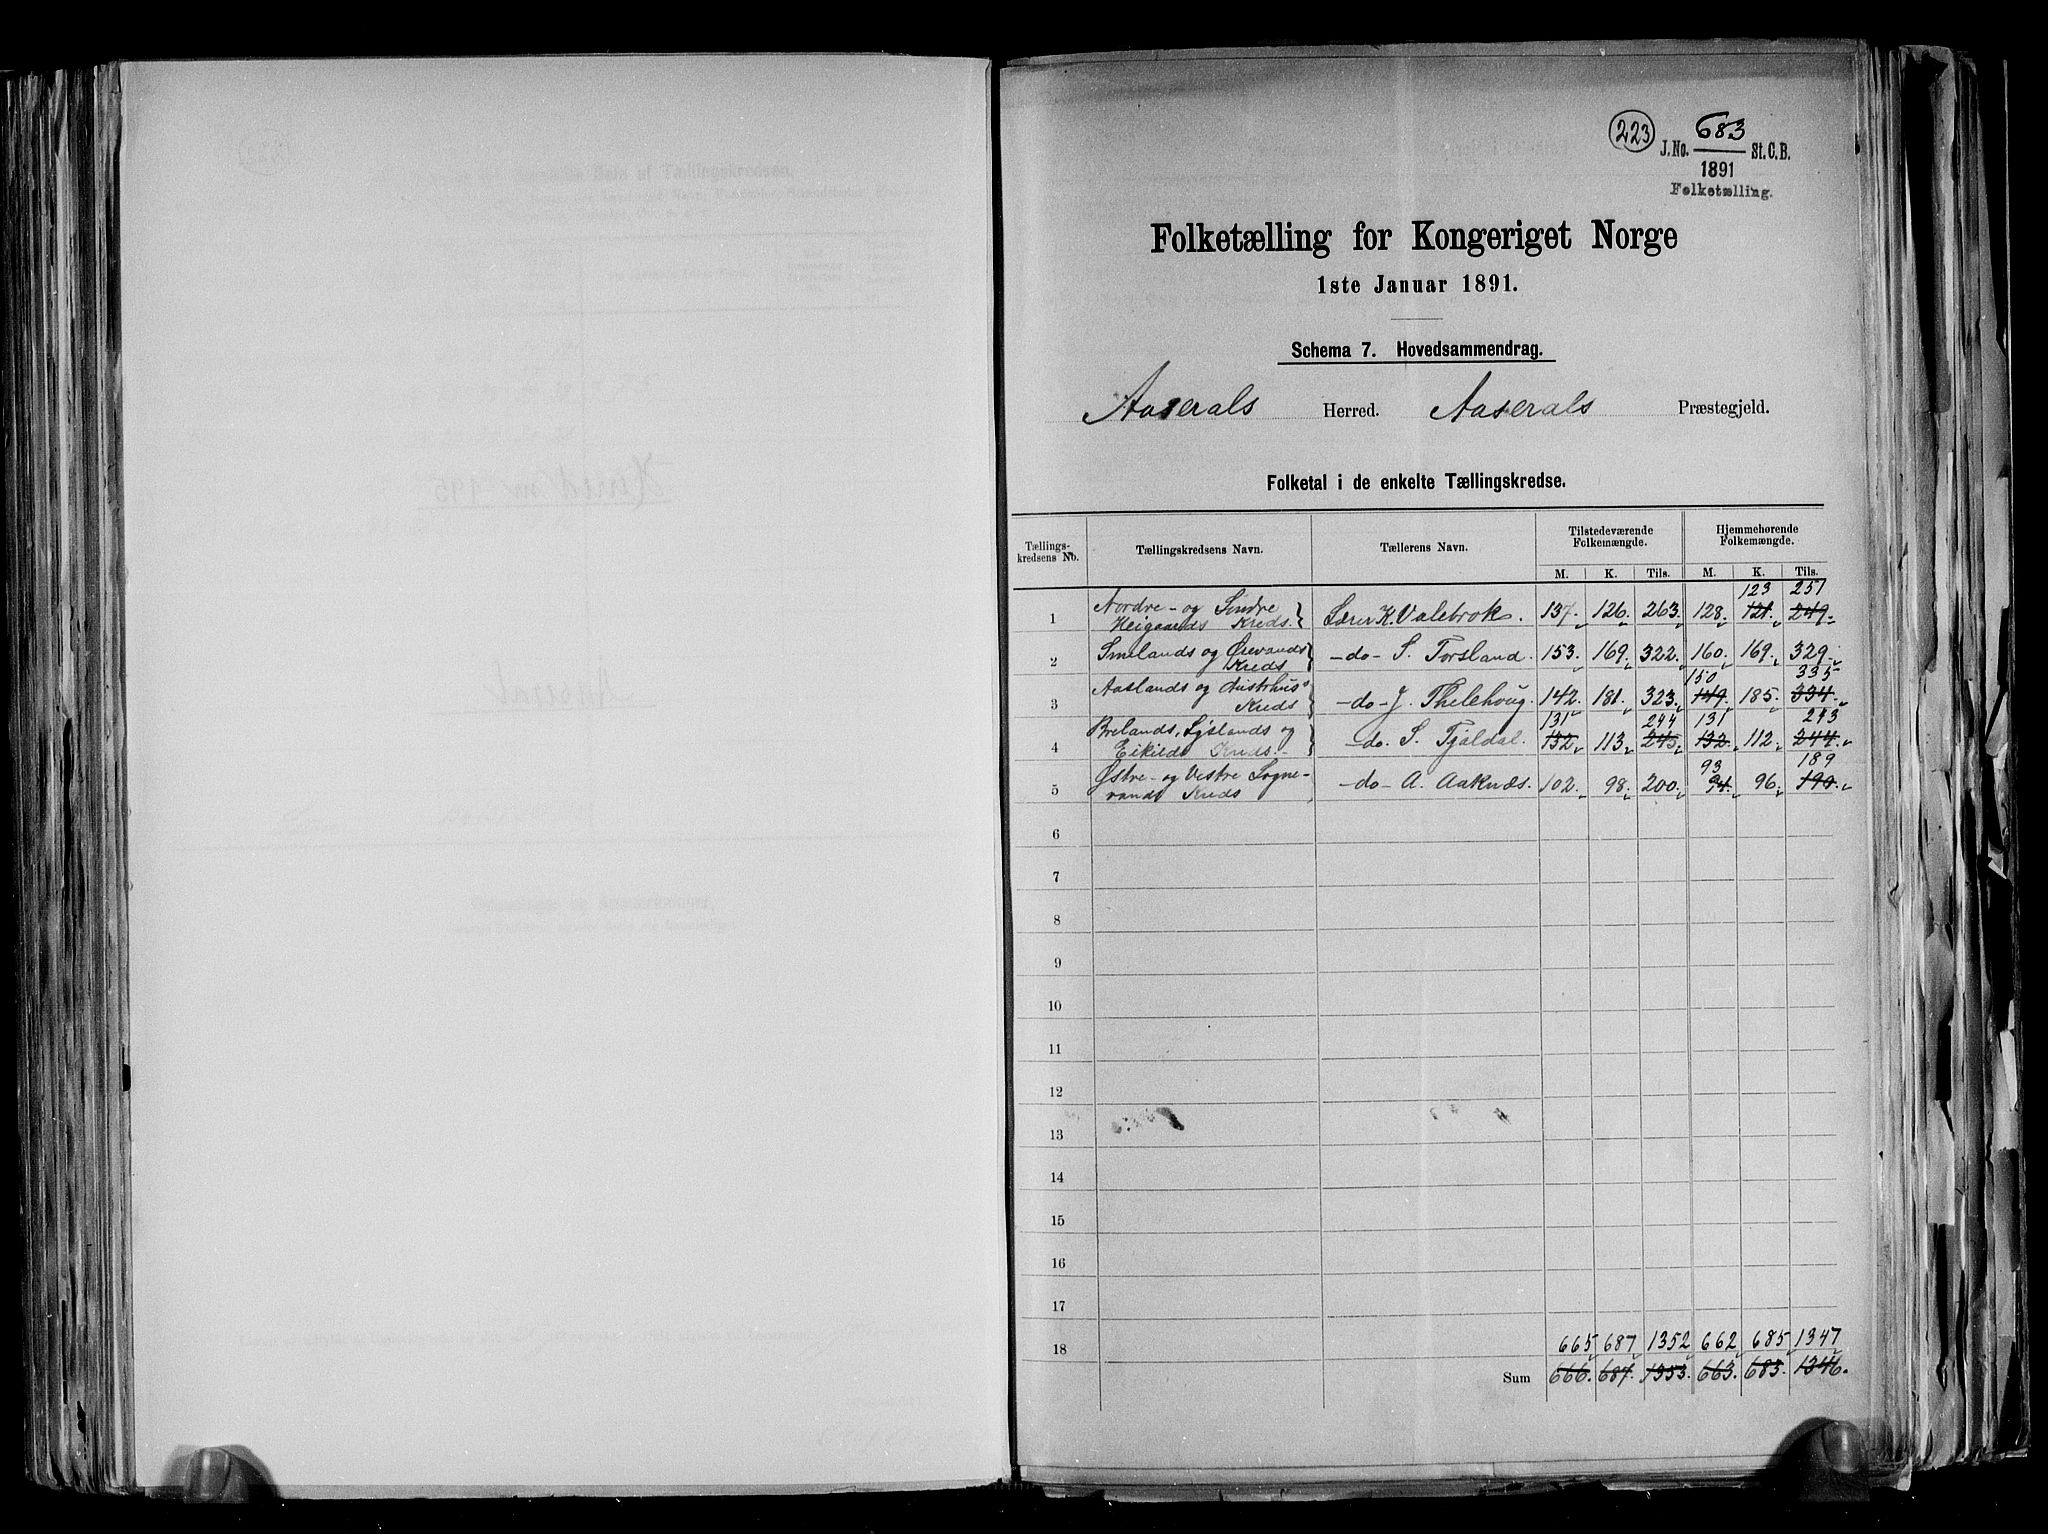 223
J.No. 683 St.C.B.
1891
Folketælling.
Folketælling for Kongeriget Norge
1ste Januar 1891.
Schema 7. Hovedsammendrag.
Aaserals Herred. Aaserals Præstegjeld.
Folketal i de enkelte Tællingskredse.
Tællings-kredsens No. Tællingskredsens Navn. Tællerens Navn. Tilstedeværende Folkemængde. Hjemmehørende Folkemængde.
M. K. Tils. M. K. Tils.
123 251
1 Nordre- og Søndre Heigaards Kreds. Lærer K. Valebrok. 137. 126. 263. 128. 121. 249.
2 Smelands og Ørevands Kreds - do - S. Torsland. 153. 169. 322. 160. 169. 329.
150 335
3 Aaslands og Austrhus' Kreds - do - J. Thelehoug. 142. 181. 323. 149. 185. 334.
131 244 131 243
4 Brelands, Lyslands og Eikilds Kreds. - do. S. Tjaldal. 132. 113. 245. 132. 112. 244.
93 189
5 Østre- og Vestre Logne-vands Kreds - do - A. Aaknæs. 102. 98. 200. 94. 96. 190.
6
7
8
9
10
11
12
13
14
15
16
17
18 665 687 1352 662 685 1347
Sum 666. 687. 1353. 663. 683. 1346.